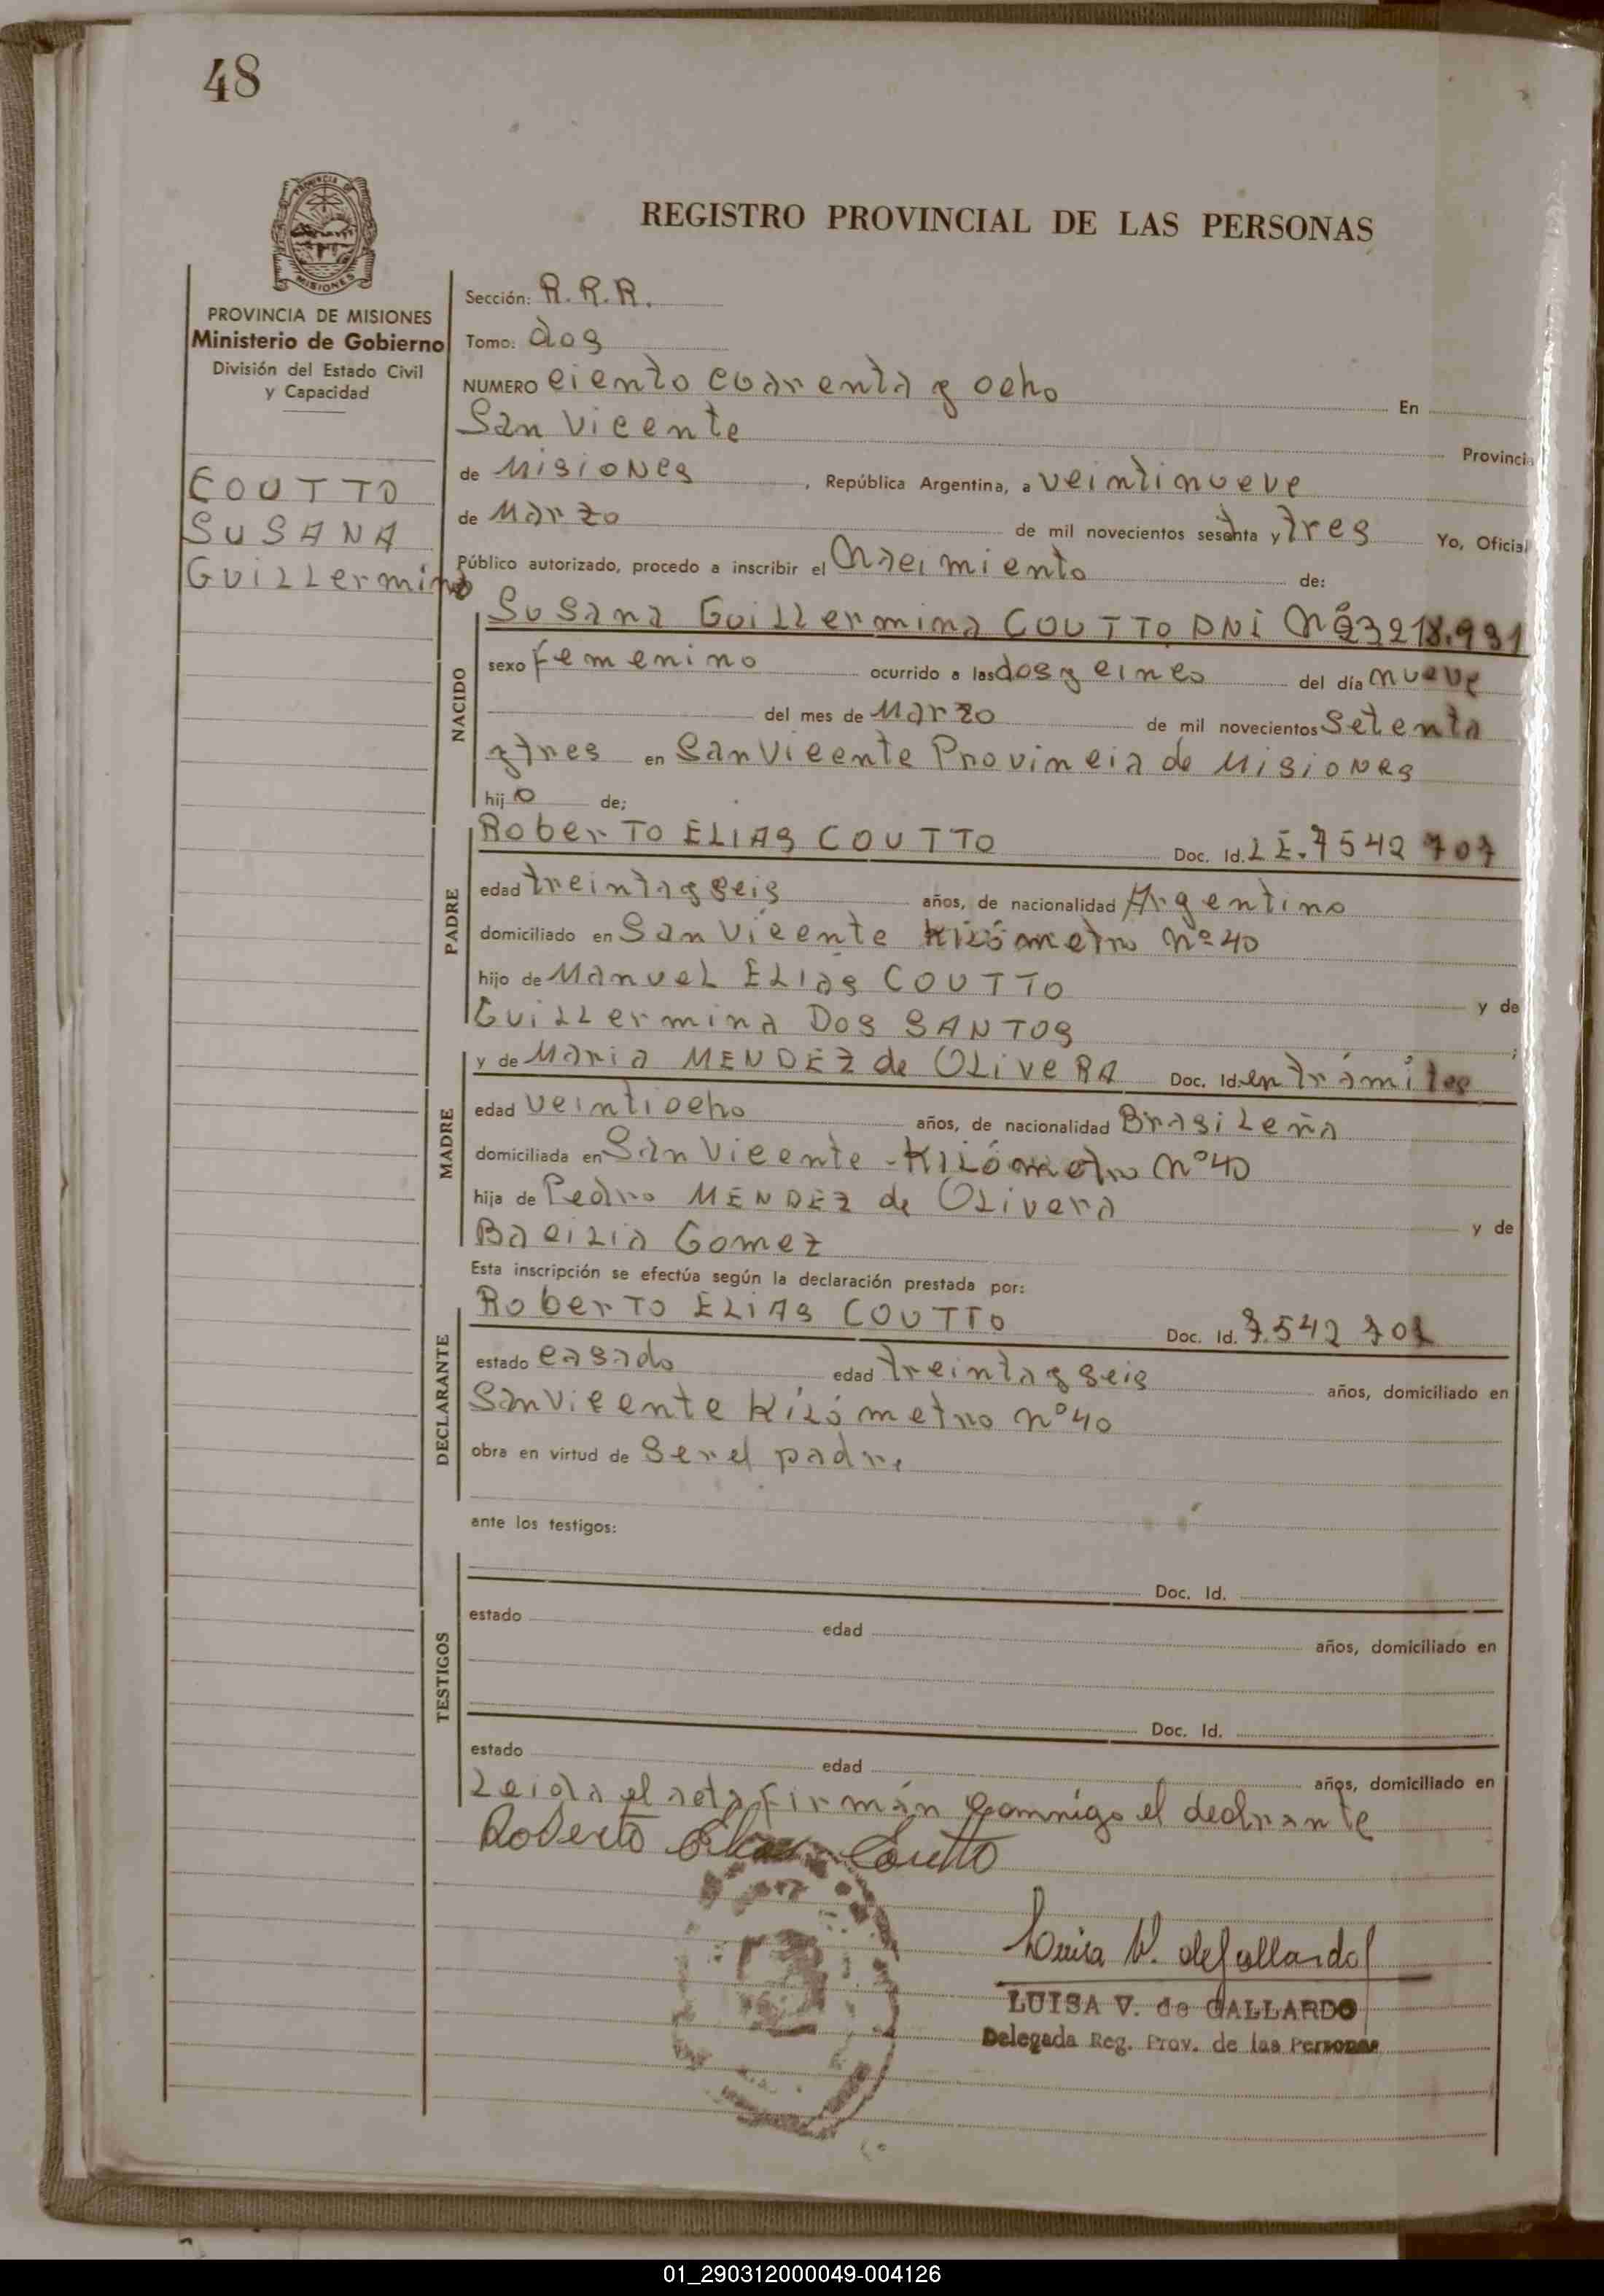 48
REGISTRO PROVINCIAL DE LAS PERSONAS
PROVINCIA DE MISIONES
Ministerio de Gobierno
División del Estado Civil
y Capacidad
COUTTO
SUSANA
Guillermina
Sección: R.R.R.
Tomo: dos
NUMERO ciento cuarenta y ocho En
San Vicente Provincia
de Misiones, República Argentina, a veintinueve
de Marzo de mil novecientos sesenta y tres Yo, Oficial
Público autorizado, procedo a inscribir el Nacimiento de:
NACIDO
Susana Guillermina COUTTO DNI Nº 23218.931
sexo femenino ocurrido a las dos y cinco del día nueve
del mes de Marzo de mil novecientos setenta
y tres en San Vicente Provincia de Misiones
hijo de;
PADRE
Roberto ELIAS COUTTO Doc. Id. LE. 7542 707
edad treinta y seis años, de nacionalidad Argentino
domiciliado en San Vicente Kilómetro Nº 40
hijo de Manuel ELias COUTTO y de
Guillermina Dos SANTOS ;
MADRE
y de Maria MENDEZ de OLiveRA Doc. Id. en trámites
edad veintiocho años, de nacionalidad Brasileña
domiciliada en San Vicente - Kilómetro Nº 40
hija de Pedro MENDEZ de Olivera y de
Bacilia Gomez
Esta inscripción se efectúa según la declaración prestada por:
DECLARANTE
Roberto ELIAS COUTTO Doc. Id. 7.542 707
estado casado edad treinta y seis años, domiciliado en
San Vicente Kilómetro nº 40
obra en virtud de Ser el padre
ante los testigos:
TESTIGOS
Doc. Id.
estado edad años, domiciliado en
Doc. Id.
estado edad años, domiciliado en
Leida el acta firmán conmigo el declrante
Roberto Elias Coutto
Luisa V. de Gallardo
LUISA V. de GALLARDO
Delegada Reg. Prov. de las Personas
01_290312000049-004126